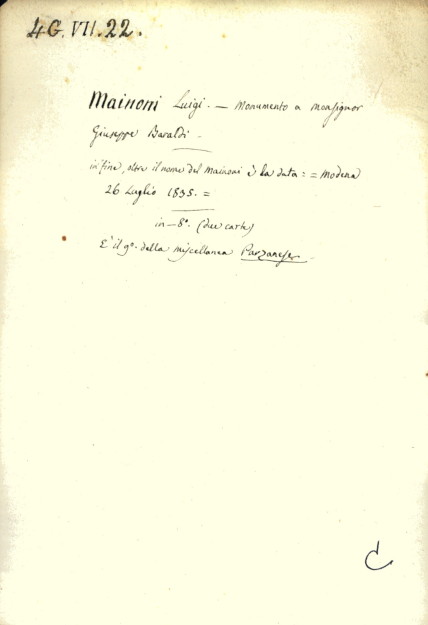 4G. VII. 22.
Mainoni Luigi. — Monumento a monsignor
Giuseppe Baraldi —
in fine, oltre il nome del Mainoni è la data: = Modena
26 Luglio 1835. =
in-8°. (due carte)
E' il 9°. della miscellanea
C